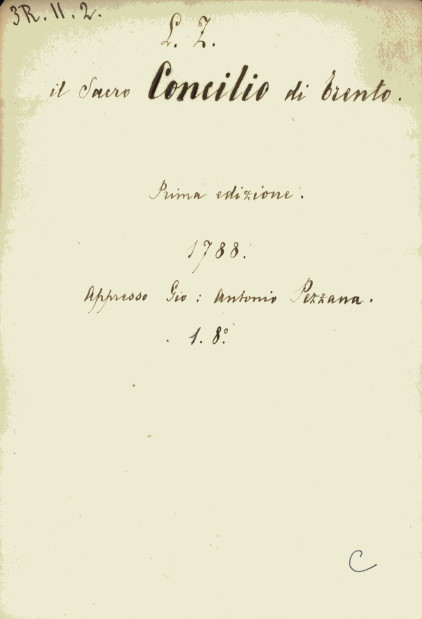 3R. 11. 2.
L. Z.
il Sacro Concilio di Trento.
Prima edizione.
1788.
Appresso Gio: Antonio Pezzana.
1. 8°
C